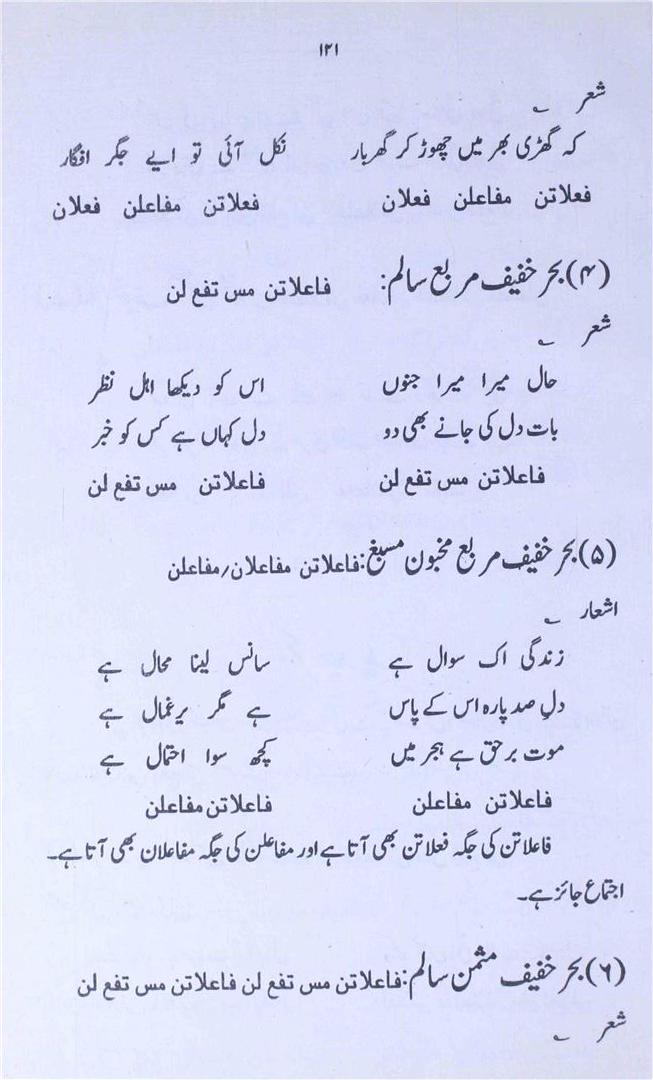 ۱۲۱
شعر ؎
کہ گھڑی بھر میں چھوڑ کر گھربار نکل آئی تو ایے جگر افگار
فعلاتن مفاعلن فعلان فعلاتن مفاعلن فعلان
(۴) بحر خفیف مربع سالم: فاعلاتن مس تفع لن
شعر ؎
حال میرا میرا جنوں اس کو دیکھا اہل نظر
بات دل کی جانے بھی دو دل کہاں ہے کس کو خبر
فاعلاتن مس تفع لن فاعلاتن مس تفع لن
(۵) بحر خفیف مربع مخبون مسبغ: فاعلاتن مفاعلان/مفاعلن
اشعار ؎
زندگی اک سوال ہے سانس لینا محال ہے
دلِ صد پارہ اس کے پاس ہے مگر یرغمال ہے
موت برحق ہے ہجر میں کچھ سوا احتمال ہے
فاعلاتن مفاعلن فاعلاتن مفاعلن
فاعلاتن کی جگہ فعلاتن بھی آتا ہے اور مفاعلن کی جگہ مفاعلان بھی آتا ہے۔
اجتماع جائز ہے۔
(۶) بحر خفیف مثمن سالم: فاعلاتن مس تفع لن فاعلاتن مس تفع لن
شعر ؎